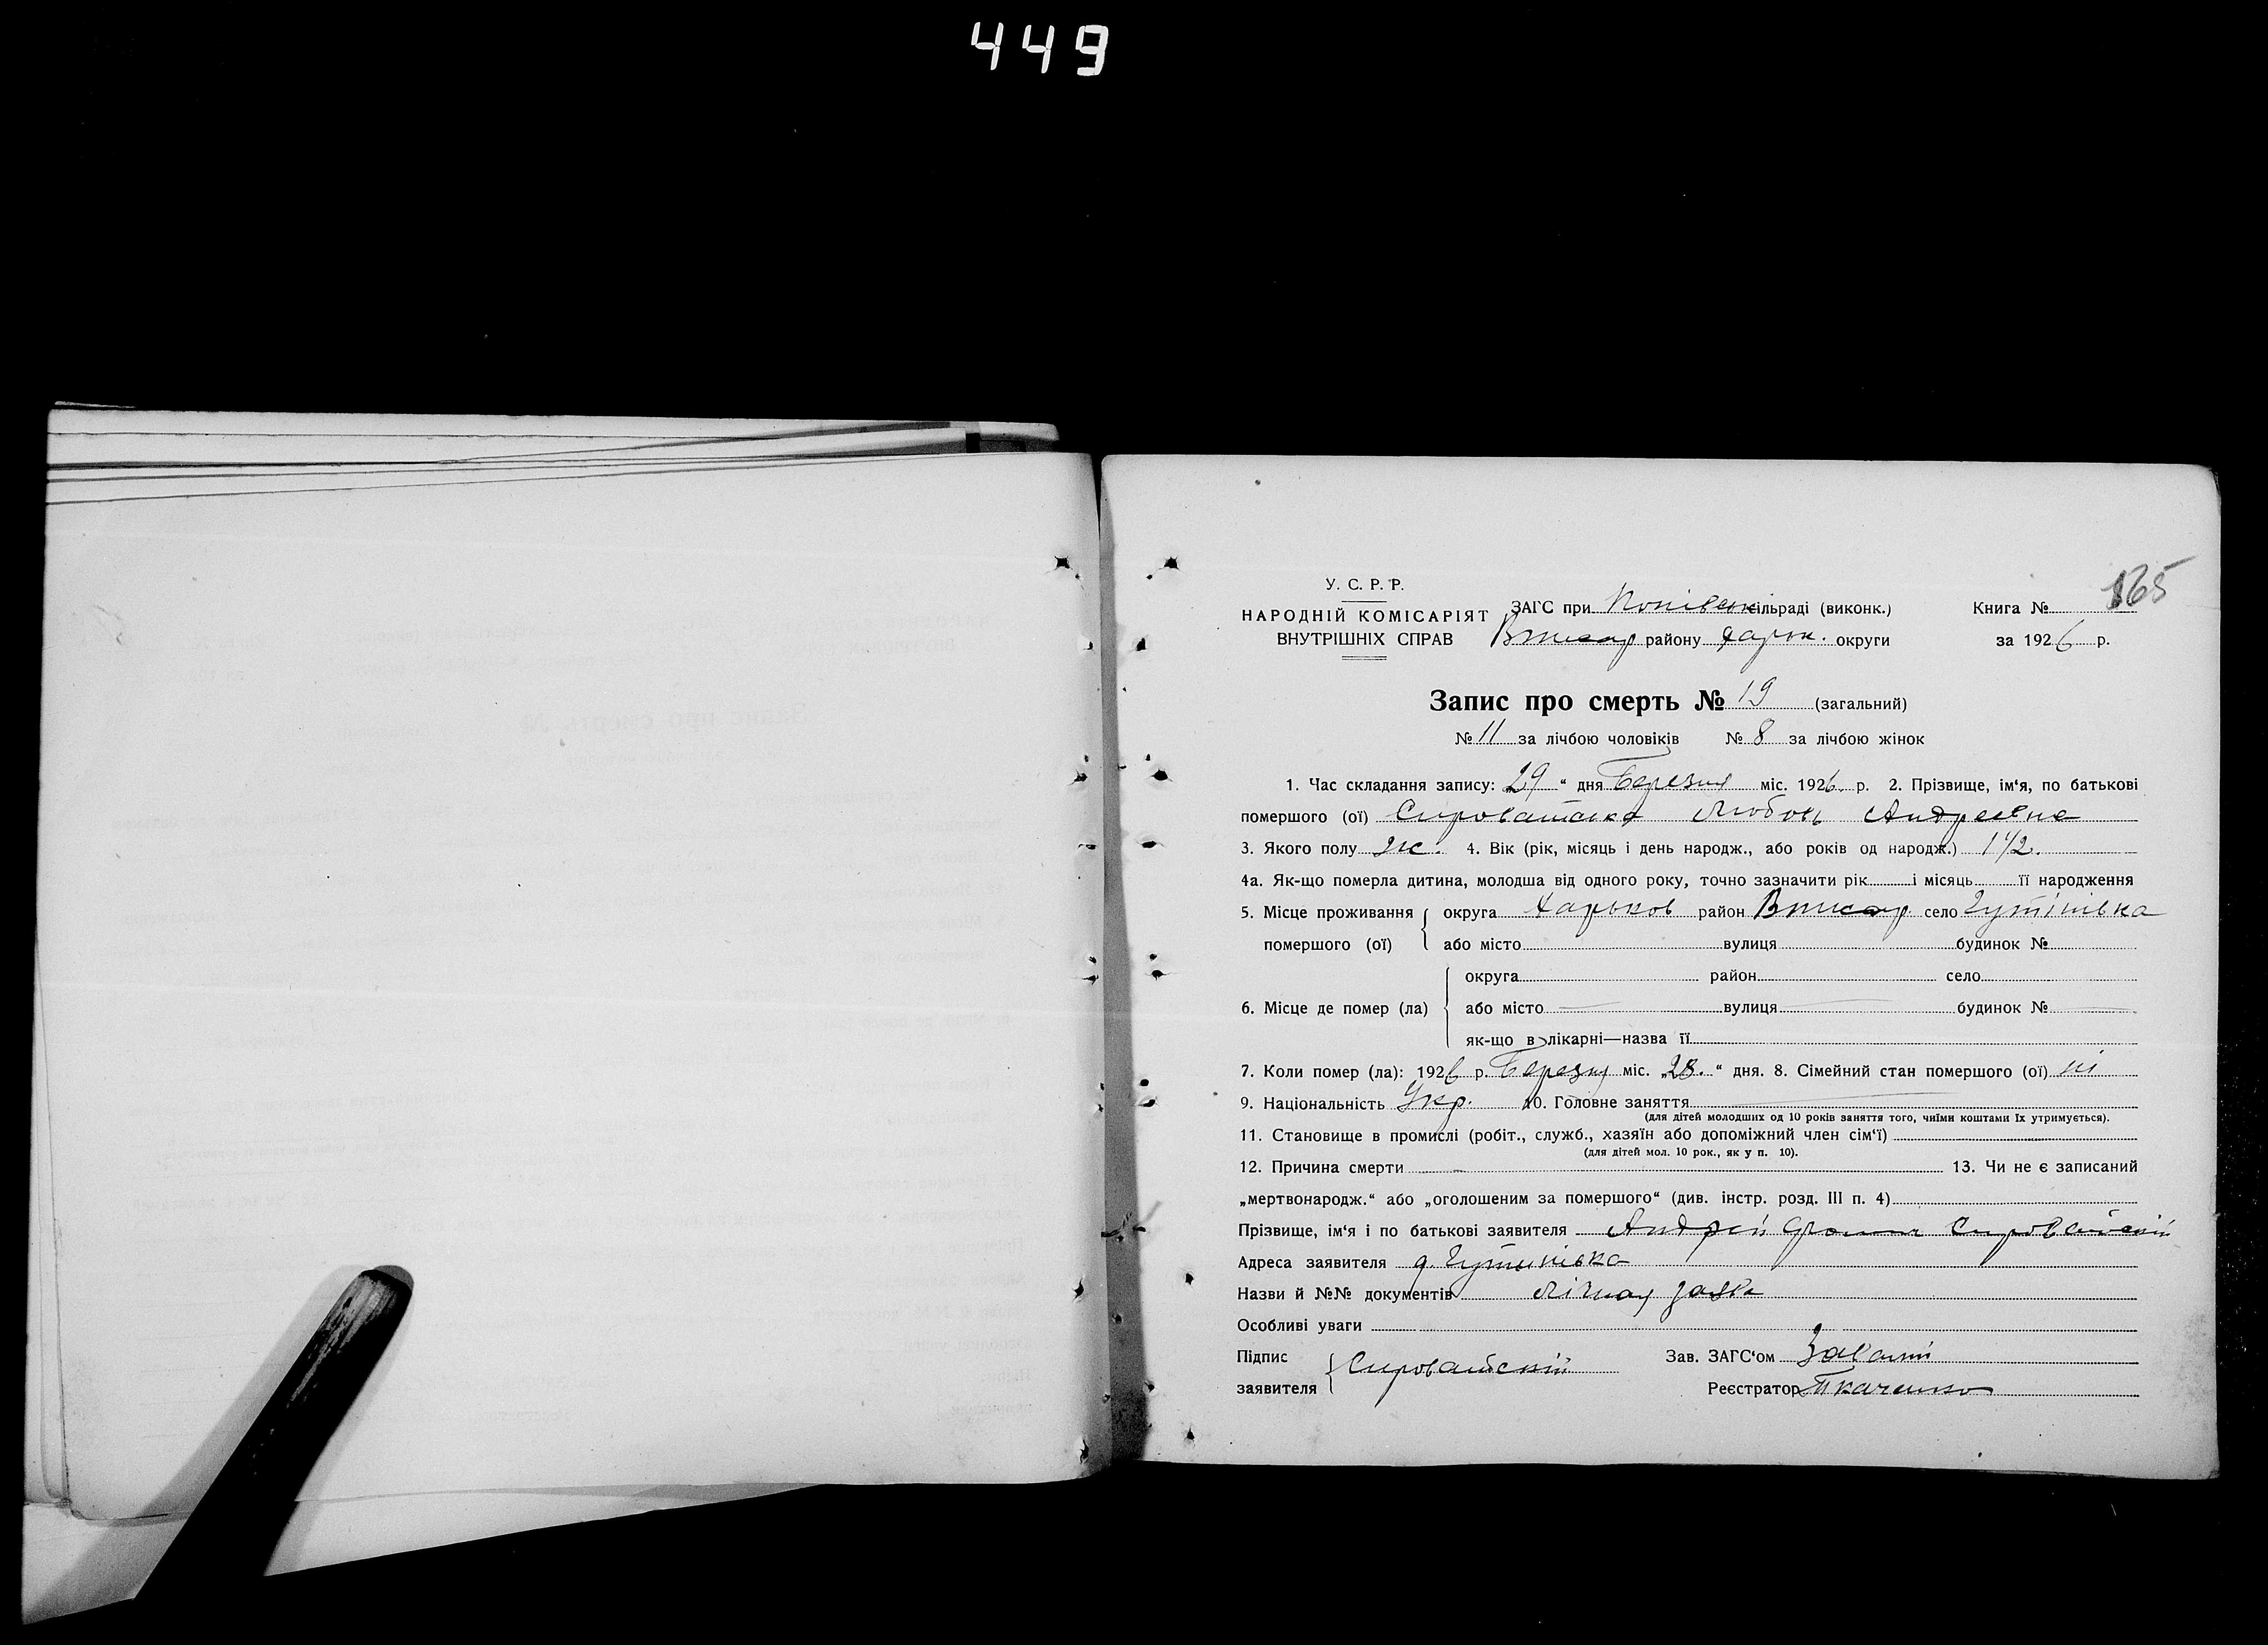 449
165
У. С. Р. Р.
НАРОДНІЙ КОМІСАРІЯТ
ВНУТРІШНІХ СПРАВ
ЗАГС при Копівській сільраді (виконк.)
району Харк. округи
Книга №
за 1926 р.
Запис про смерть № 19 (загальний)
№ 11 за лічбою чоловіків № 8 за лічбою жінок
1. Час складання запису: 29 “ дня Березня міс. 1926. р. 2. Прізвище, ім‘я, по батькові
помершого (ої) Сироватська Любовь Андреевна
3. Якого полу ж. 4. Вік (рік, місяць і день народж., або років од народж.) 1 1/2.
4а. Як-що померла дитина, молодша від одного року, точно зазначити рік і місяць її народження
5. Місце проживання помершого (ої) округа Харьков район село Гутинівка
або місто вулиця будинок №
6. Місце де помер (ла) округа район село
або місто вулиця будинок №
як-що в лікарні—назва її
7. Коли помер (ла): 1926 р. Березня міс. „28. “ дня. 8. Сімейний стан помершого (ої) ні
9. Національність Укр. 10. Головне заняття
(для дітей молодших од 10 років заняття того, чиїми коштами їх утримується).
11. Становище в промислі (робіт., служб., хазяїн або допоміжний член сім‘ї)
(для дітей мол. 10 рок., як у п. 10).
12. Причина смерти 13. Чи не є записаний
„мертвонародж.“ або „оголошеним за помершого“ (див. інстр. розд. III п. 4)
Прізвище, ім‘я і по батькові заявителя Андрей Сироватский
Адреса заявителя Гутинівка
Назви й №№ документів Лічная заява
Особливі уваги
Підпис заявителя Сироватский
Зав. ЗАГС‘ом
Реєстратор Ткаченко